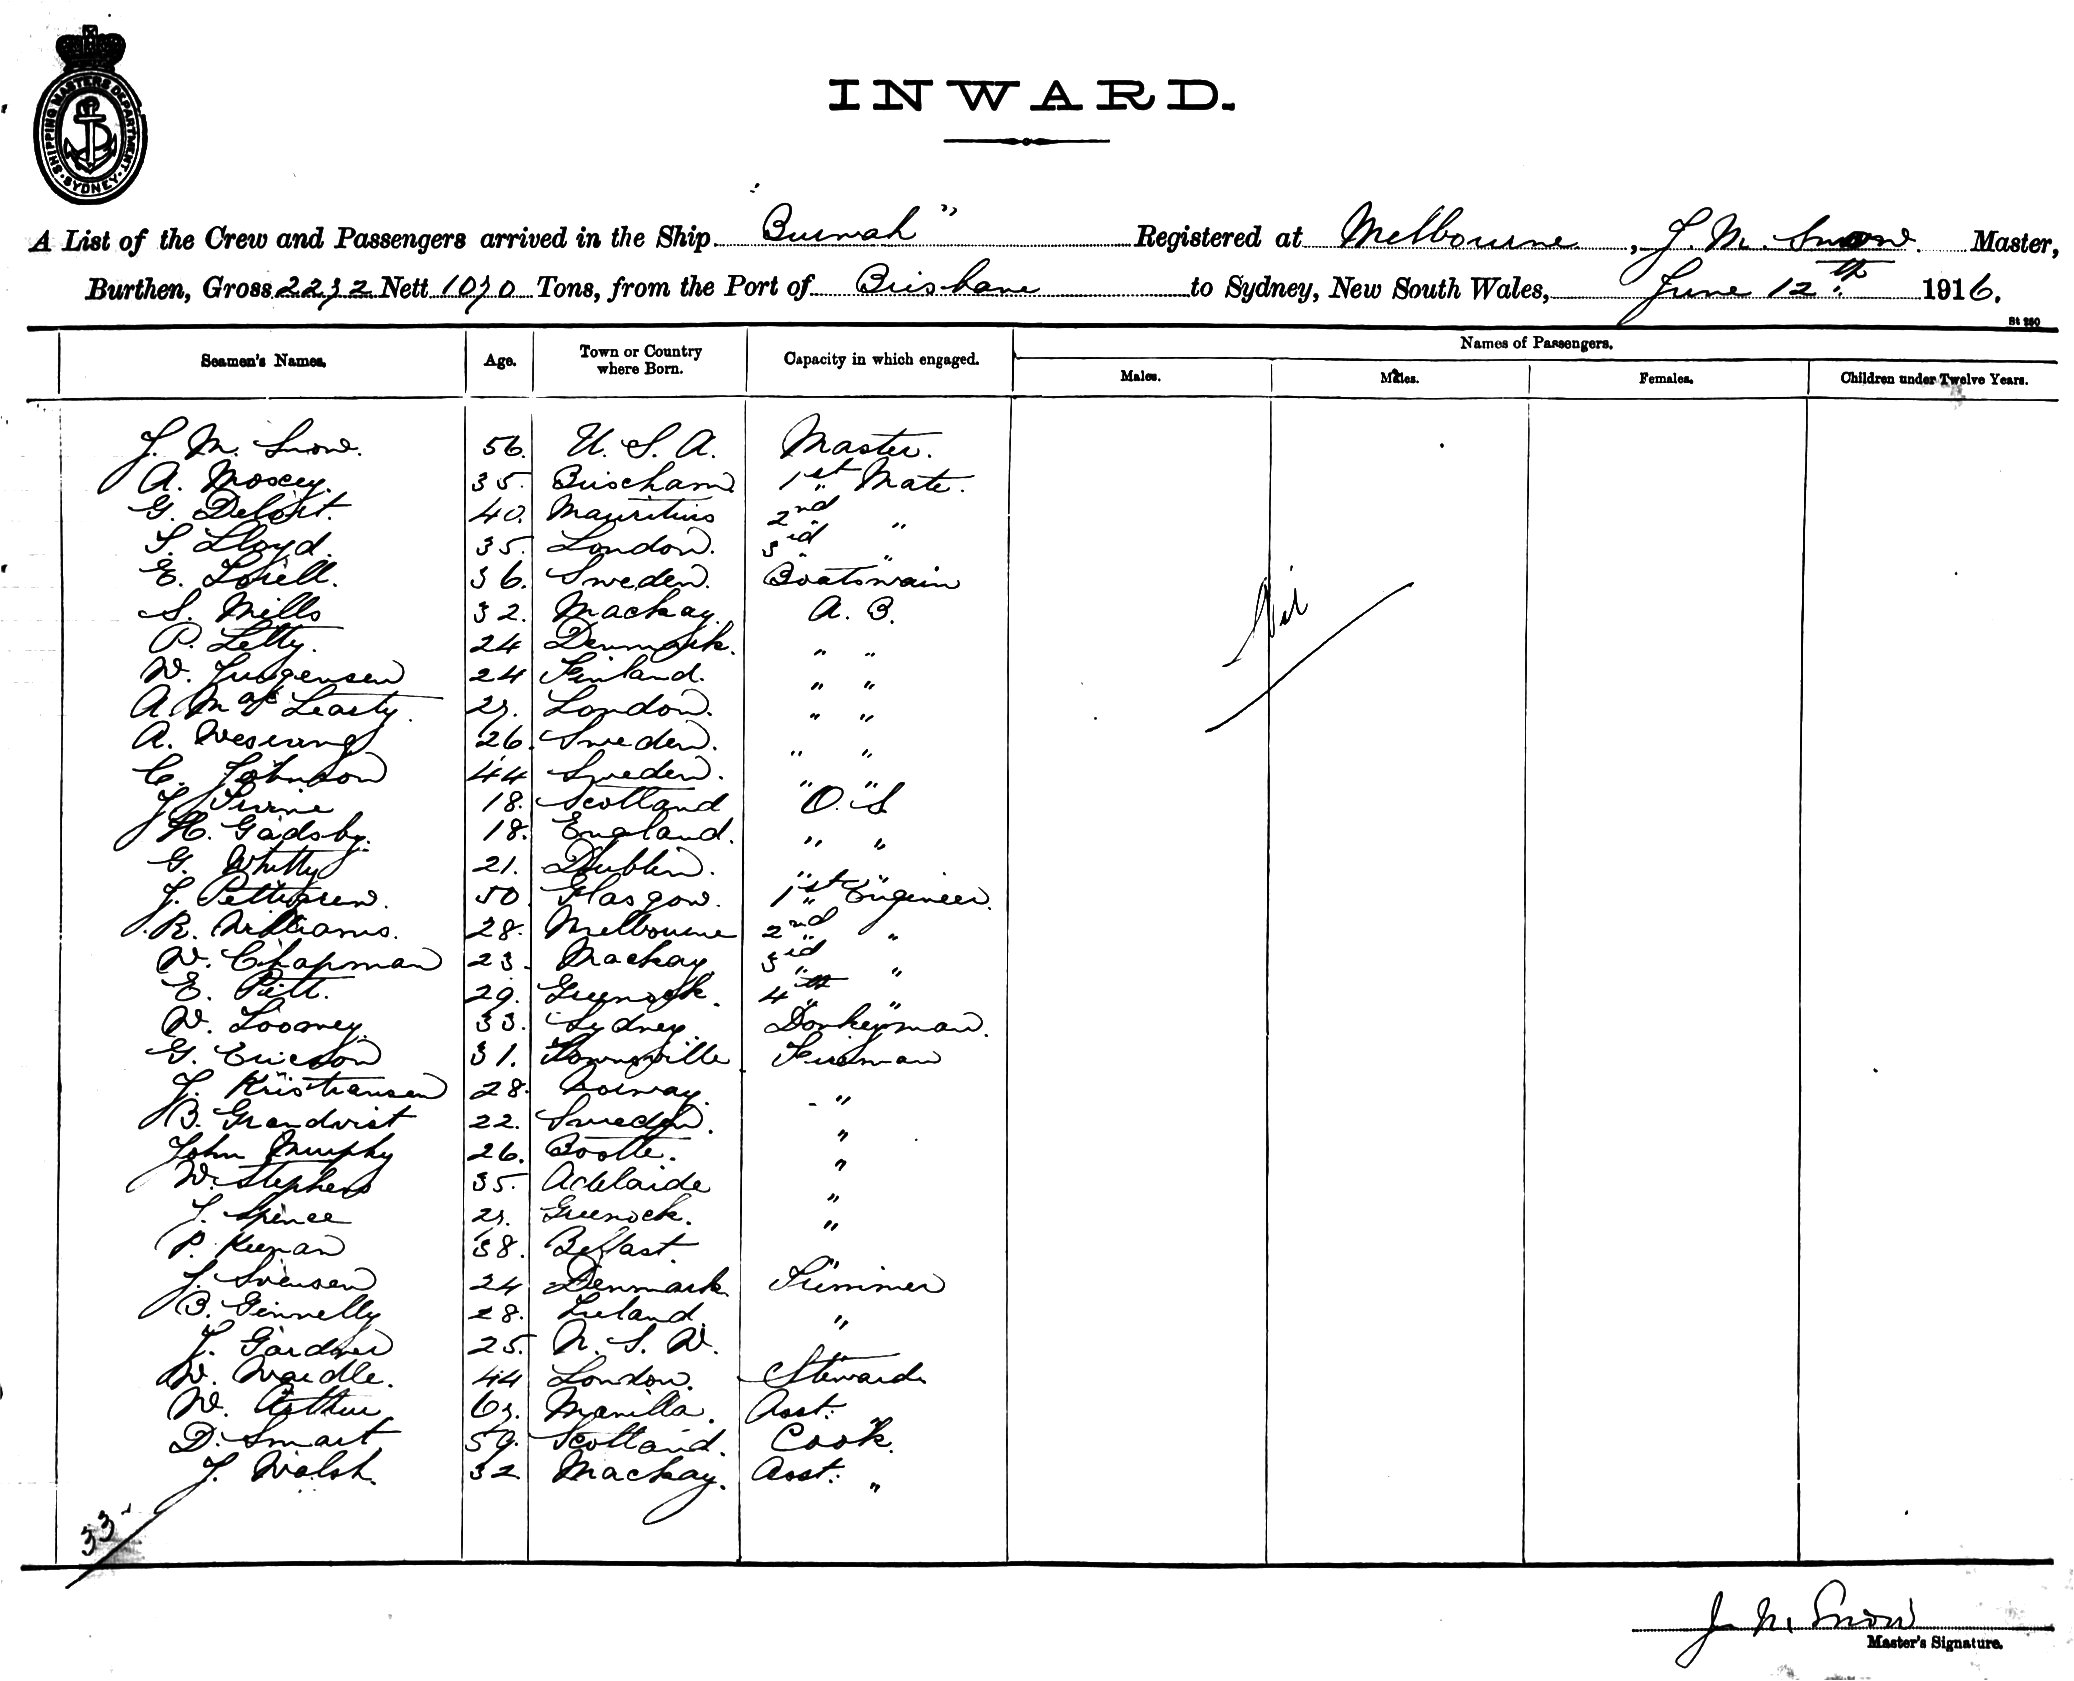 SHIPPING MASTERS DEPARTMENT
SYDNEY
INWARD.
A List of the Crew and Passengers arrived in the Ship "Burwah" Registered at Melbourne, J. M. Snow Master,
Burthen, Gross Nett Tons, from the Port of Brisbane to Sydney, New South Wales, June 12th 1916.
St 280
Seamen's Names. Age. Town or Country where Born. Capacity in which engaged. Names of Passengers.
Males. Males. Females. Children under Twelve Years.
J. M. Snow. 56. U. S. A. Master.
A. Moxey. 35. 1st Mate.
G. 40. Mauritius 2nd "
S. Lloyd. 35. London. 3rd "
E. 36. Sweden. Boatswain
S. Mills 32. Mackay. A. B.
P. Letty. 24 Denmark. " "
W. Jurgensen 24 Finland. " "
A. London. " "
A. 26. Sweden. " "
C. Johnson 44 Sweden. " "
J. Irvine 18. Scotland O. S.
H. Gadsby. 18. England. " "
G. Whitty 21. Dublin. " "
J. Pettigrew. 50. Glasgow. 1st Engineer.
R. Williams. 28. Melbourne 2nd "
W. Chapman 23. Mackay 3rd "
E. 29. Greenock. 4th "
W. Loomey. 33. Sydney. Donkeyman.
G. Ericson 31. Townsville Fireman
J. Kristiansen 28. Norway. "
B. Grandvist 22. Sweden. "
John Murphy 26. Bootle. "
W. Stephens 35. Adelaide "
J. Spence Greenock. "
P. Keenan 38. Belfast. "
J. Svensen 24 Denmark. Trimmer
B. Ginnelly 28. Ireland. "
J. Gardner 25. N. S. W. "
W. Wardle. 44 London. Steward
W. Arthur Manilla. Asst: "
D. Smart 59. Scotland. Cook.
J. Walsh. 32 Mackay. Asst: "
Nil
33
J. M. Snow
Master's Signature.